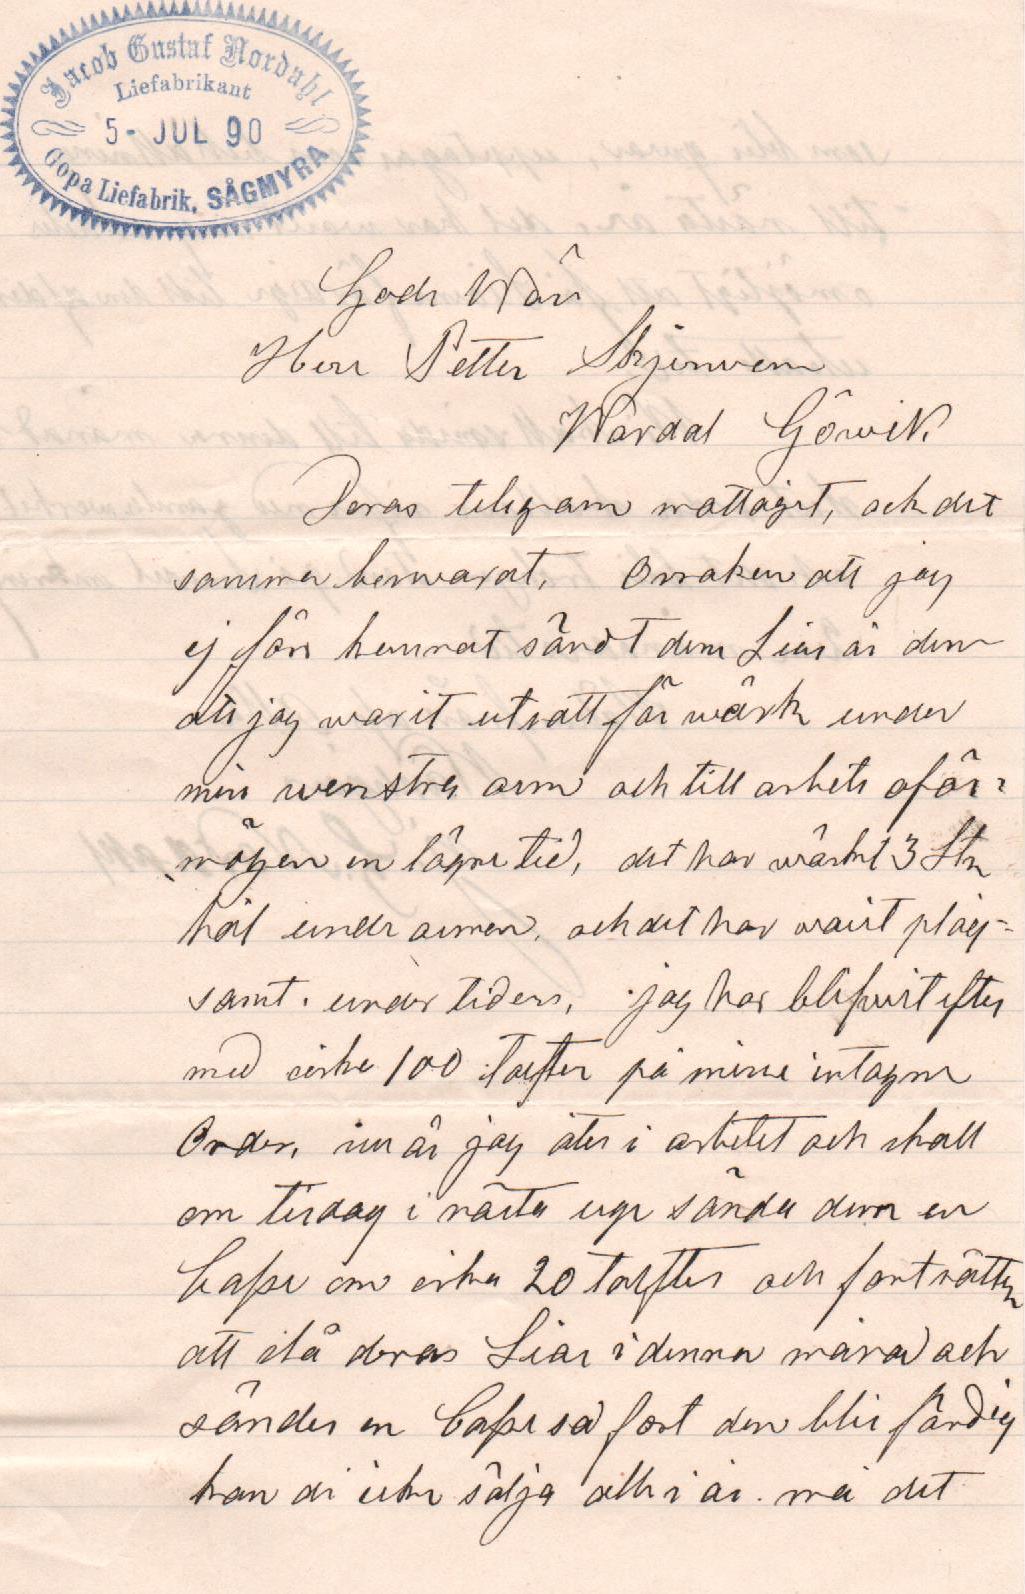 Jacob Gustaf Nordahl
Liefabrikant
5- JUL 90
Gopa Liefabrik, SÅGMYRA
Gode Wän
Herr Petter Skjerwem
Wardal Göwik.
Deras telegram mottaget, och det
samma beswarat, Orsaken att jag
ej förr kunnat sändt dem Liar är den
att jag warit utsatt för wärk under
min wenstra arm och till arbete oför-
mögen en lägre tid, det har wärkt 3 Stk
hål under armen, och det har warit plåg-
samt. under tiden, jag har blifwit efter
med cirka 100 tolfter på mina intagna
Order, nu är jag åter i arbetet och skall
om tisdag i nästa uge sända dem en
Casse om cirka 20 tolfter och fortsätter
att slå deras Liar i denna månad och
sänder en Casse så fort den blir färdig
kan di icke sälja alle i år. må det